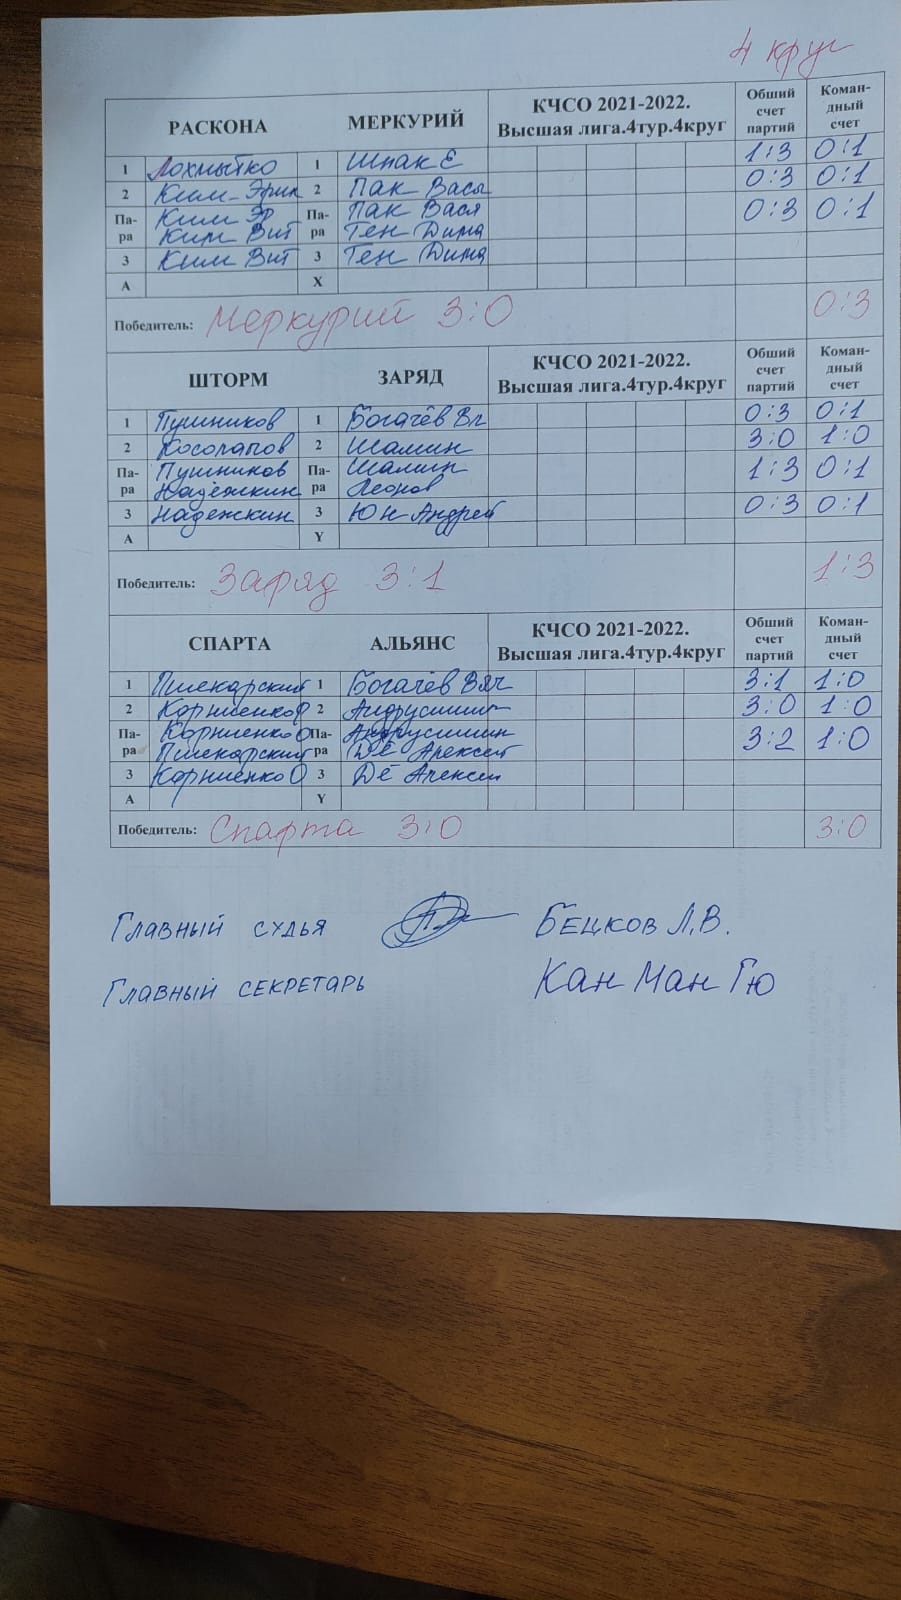 4 круг
РАСКОНА МЕРКУРИЙ КЧСО 2021-2022. Высшая лига.4тур.4круг Обший счет партий Коман-дный счет
1 Лохмытко 1 Шпак Е 1:3 0:1
2 Ким Эрик 2 Пак Вася 0:3 0:1
Па-ра Ким Эр Па-ра Пак Вася 0:3 0:1
Ким Вит Тен Дима
3 Ким Вит 3 Тен Дима
А Х
Победитель: Меркурий 3:0 0:3
ШТОРМ ЗАРЯД КЧСО 2021-2022. Высшая лига.4тур.4круг Обший счет партий Коман-дный счет
1 Пушников 1 Богачёв Вл 0:3 0:1
2 Косолапов 2 Шамин 3:0 1:0
Па-ра Пушников Па-ра Шамин 1:3 0:1
Надежкин Леонов
3 Надежкин 3 Юн Андрей 0:3 0:1
А Y
Победитель: Заряд 3:1 1:3
СПАРТА АЛЬЯНС КЧСО 2021-2022. Высшая лига.4тур.4круг Обший счет партий Коман-дный счет
1 Пшекарский 1 Богачёв Вяч 3:1 1:0
2 Корниенко 2 Андрусишин 3:0 1:0
Па-ра Корниенко О Па-ра Андрусишин 3:2 1:0
Пшекарский Дё Алексей
3 Корниенко О 3 Дё Алексей
А Y
Победитель: Спарта 3:0 3:0
Главный судья Бецков Л.В.
Главный секретарь Кан Ман Гю